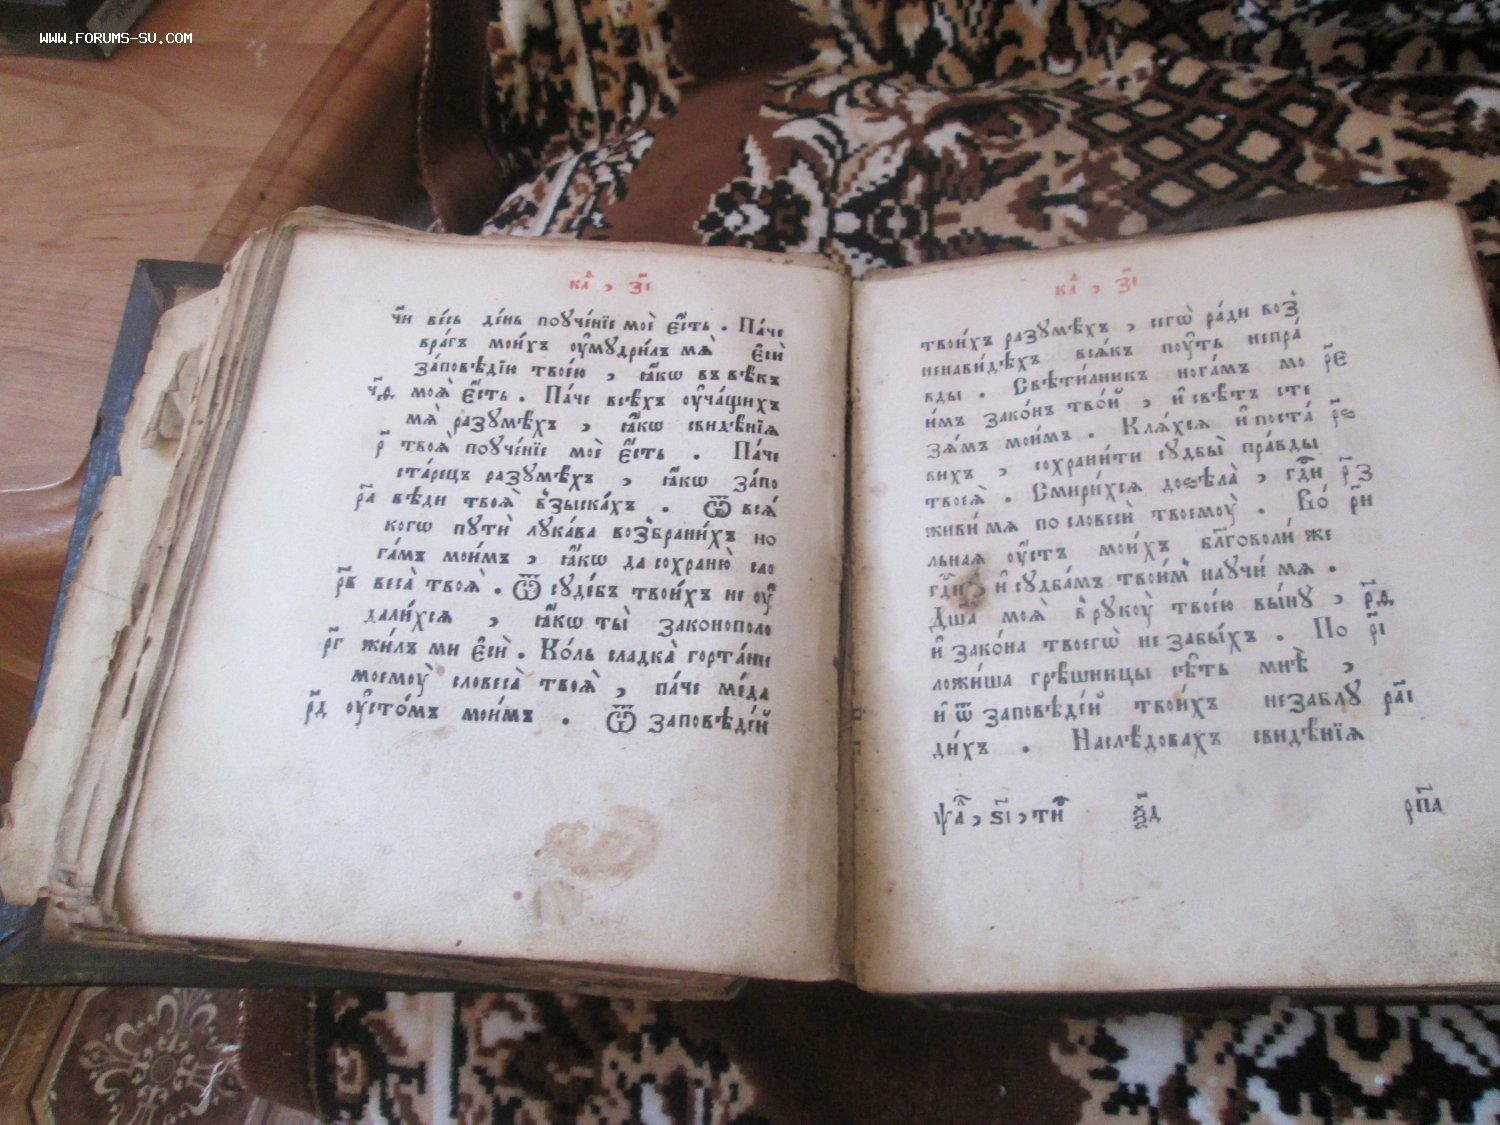 WWW.FORUMS-SU.COM
каⷴ , з҃і
ч҃и ве́сь де́нь поуче́нїе моѐ є҆́сть . Па́че
вра́гъ мои́хъ оу҆мудри́лъ мѧ̀ є҆сѝ
за́повѣдїю твое́ю , ꙗ҆́кѡ въ вѣ́къ
ч҃ѳ моѧ̀ є҆́сть . Па́че всѣ́хъ оу҆ча́щихъ
мѧ̀ разумѣ́хъ , ꙗ҆́кѡ свидѣ́нїѧ
р҃ твоѧ̀ поуче́нїе моѐ є҆́сть . Па́че
ста́рецъ разумѣ́хъ , ꙗ҆́кѡ за́по
р҃а вѣди твоѧ̀ взыска́хъ . Ѿ всѧ́
когѡ путѝ лука́ва возбрани́хъ но
га́мъ мои́мъ , ꙗ҆́кѡ да сохраню̀ сло
р҃в веса̀ твоѧ̀ . Ѿ суде́бъ твои́хъ не оу҆
дали́хсѧ , ꙗ҆́кѡ ты̀ законополо
р҃г жи́лъ ми є҆сѝ . Ко́ль сладка̀ горта́ни
моемоу̀ словеса̀ твоѧ̀ , па́че ме́да
р҃д оу҆сто́мъ мои́мъ . Ѿ за́повѣде́й
каⷴ , з҃і
твои́хъ разумѣ́хъ , сегѡ̀ ра́ди воз
ненави́дѣхъ всѧ́къ поу́ть непра́
вды . Свѣти́лникъ нога́мъ мо р҃е
и́мъ зако́нъ тво́й , и҆ свѣ́тъ сте
зѧ́мъ мои́мъ . Клѧ́хсѧ и҆ поста́ р҃ѕ
вихъ , сохрани́ти судбы̀ пра́вды
твоеѧ̀ . Смири́хсѧ доѕѣла̀ , гдⷭ҇и р҃з
живи́ мѧ по словесѝ твоемоу̀ . Во́ р҃и
льнаѧ оу҆́стъ мои́хъ бл҃говоли́ же
гдⷭ҇и , и҆ судба́мъ твои́мъ научи́ мѧ .
Дша̀ моѧ̀ в рукоу̀ твое́ю вы́ну , р҃ѳ
и҆ зако́на твоегѡ̀ не забы́хъ . По р҃і
ложи́ша грѣ́шницы сѣ́ть мнѣ̀ ,
и҆ ѿ за́повѣде́й твои́хъ незаблу р҃аі
ди́хъ . Наслѣ́довахъ свидѣ́нїѧ
ѱаⷧ , ѕ҃і , ти ѯ҃д рп҃а